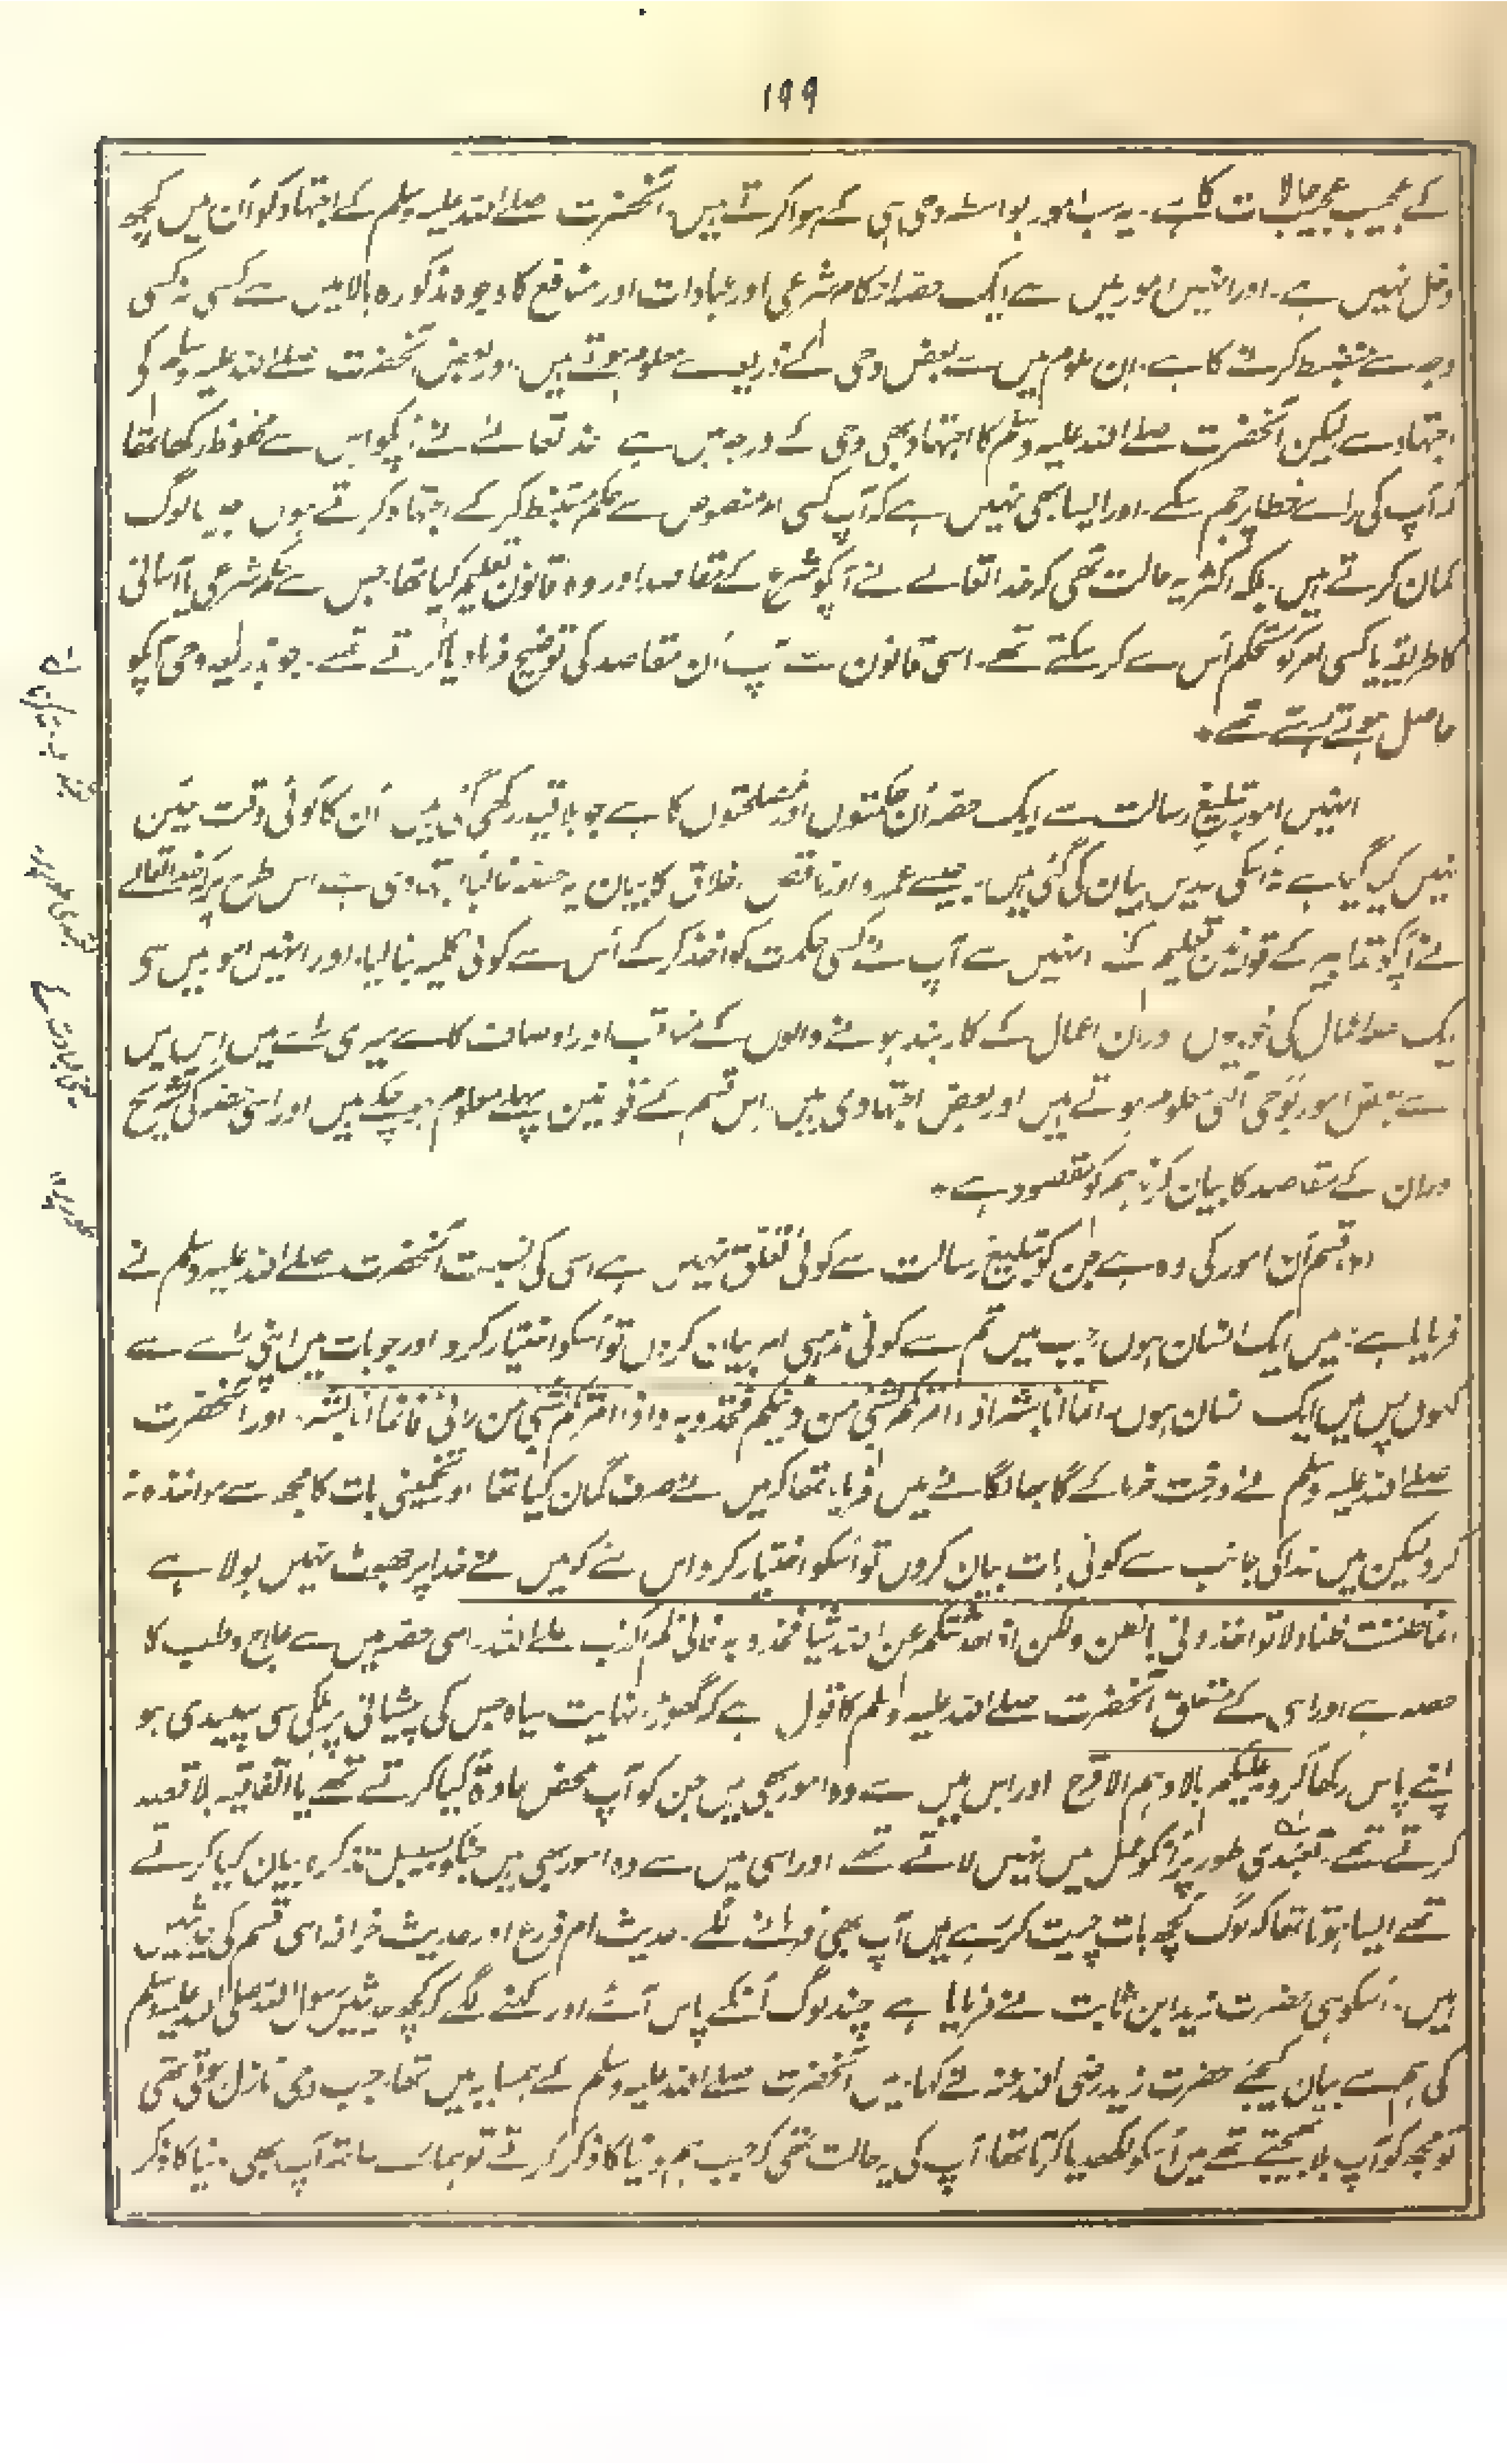 ۱۹۹
کے عجیب عجیب حالات کا ہے۔ یہ سب امور بواسطہ وحی ہی کے ہوا کرتے ہیں۔ آنحضرت صلے اللہ علیہ وسلم کے اجتہاد کو ان میں کچھ
دخل نہیں ہے۔ اور انہیں امور میں سے ایک حصہ احکام شرعی اور عبادات اور منافع کا وجوہ مذکورہ بالا میں سے کسی نہ کسی
وجہ سے منضبط کرنے کا ہے۔ ان علوم میں سے بعض وحی کے ذریعہ سے معلوم ہوتے ہیں۔ اور بعض آنحضرت صلے اللہ علیہ وسلم کی
اجتہاد سے لیکن آنحضرت صلے اللہ علیہ وسلم کا اجتہاد بھی وحی کے درجہ میں ہے خدا تعالے نے آپکو اس سے محفوظ رکھا تھا
کہ آپ کی رائے خطا پر جم سکے۔ اور ایسا بھی نہیں ہے کہ آپ کسی امر منصوص سے حکم مستنبط کر کے اجتہاد کرتے ہوں جیسا لوگ
گمان کرتے ہیں۔ بلکہ اکثر یہ حالت تھی کہ خدا تعالے نے آپکو شرع کے مقاصد اور وہ قانون تعلیم کیا تھا جس سے حکم شرعی یا آسانی
کا طریقہ یا کسی امر کو مستحکم اس سے کر سکتے تھے۔ اسی قانون سے آپ اُن مقاصد کی توضیح فرما دیا کرتے تھے۔ جو بذریعہ وحی آپکو
حاصل ہوتے رہتے تھے۔
انہیں امور تبلیغ رسالت سے ایک حصہ اُن حکمتوں اور مصلحتوں کا ہے جو بلا قید رکھی گئی ہیں اُن کا کوئی وقت معین
نہیں کیا گیا ہے نہ اُنکی حدیں بیان کی گئی ہیں۔ جیسے عمدہ اور ناقص اخلاق کا بیان یہ حصہ غالباً اجتہادی ہے اس طرح پر کہ خدا تعالے
نے آپکو تدابیر کے قوانین تعلیم کئے انہیں سے آپ نے کسی حکمت کو اخذ کر کے اُس سے کوئی کلیہ بنا لیا۔ اور انہیں امور میں سے
ایک حصہ اعمال کی خوبیوں اور ان اعمال کے کاربند ہونے والوں کے مناقب اور اوصاف کا ہے میری رائے میں اس میں
سے بعض امور بوحی الٰہی معلوم ہوتے ہیں اور بعض اجتہادی ہیں۔ اِس قسم کے قوانین پہلے معلوم ہو چکے ہیں اور اسی حصہ کی تشریح
اور ان کے مقاصد کا بیان کرنا ہم کو مقصود ہے۔
دوم قسم اُن امور کی وہ ہے جن کو تبلیغ رسالت سے کوئی تعلق نہیں ہے اسی کی نسبت آنحضرت صلے اللہ علیہ وسلم نے
فرمایا ہے۔ میں ایک انسان ہوں۔ جب میں تم سے کوئی مذہبی امر بیان کروں تو اُسکو اختیار کرو اور جو بات میں اپنی رائے سے
کہوں پس میں ایک انسان ہوں۔ انما انا بشر اذا امرتکم بشئی من دینکم فخذوا بہ واذا امرتکم بشئی من رائی فانما انا بشر۔ اور آنحضرت
صلے اللہ علیہ وسلم نے درخت خرما کے گابھا لگانے میں فرمایا تھا کہ میں نے صرف گمان کیا تھا اور تخمینی بات کا مجھ سے مواخذہ نہ
کرو لیکن میں خدا کی جانب سے کوئی بات بیان کروں تو اُسکو اختیار کرو اس لئے کہ میں نے خدا پر جھوٹ نہیں بولا ہے
انما ظننت ظنا ولا تواخذونی بالظن ولکن اذا حدثتکم عن اللہ شیئا فخذوا بہ فانی لم اکذب علے اللہ۔ اسی حصہ میں سے علاج و طب کا
حصہ ہے اور اسی کے متعلق آنحضرت صلے اللہ علیہ وسلم کا قول ہے کہ گھوڑا نہایت سیاہ جس کی پیشانی پر ہلکی سی سپیدی ہو
اپنے پاس رکھا کرو علیکم بالادہم الاقرح اور اس میں سے وہ امور بھی ہیں جن کو آپ محض عادۃً کیا کرتے تھے یا اتفاقیہ بلا قصد
کرتے تھے۔ تعبدی طور پر انکو عمل میں نہیں لاتے تھے اور اسی میں سے وہ امور بھی ہیں جنکو بسبیل تذکرہ بیان کیا کرتے
تھے ایسا ہوتا تھا کہ لوگ کچھ بات چیت کر رہے ہیں آپ بھی فرمانے لگے۔ حدیث ام زرع اور حدیث خرافہ اسی قسم کی حدیثیں
ہیں۔ اسکو ہی حضرت زید ابن ثابت نے فرمایا ہے چند لوگ اُنکے پاس آئے اور کہنے لگے کہ کچھ حدیثیں رسول اللہ صلی اللہ علیہ وسلم
کی ہم سے بیان کیجئے حضرت زید رضی اللہ عنہ نے کہا۔ میں آنحضرت صلے اللہ علیہ وسلم کے ہمسایہ میں تھا۔ جب وحی نازل ہوتی تھی
تو مجھ کو آپ بلا بھیجتے تھے میں اُسکو لکھدیا کرتا تھا۔ آپ کی یہ حالت تھی کہ جب ہم دنیا کا ذکر کرتے تو ہمارے ساتھ آپ بھی دنیا کا ذکر